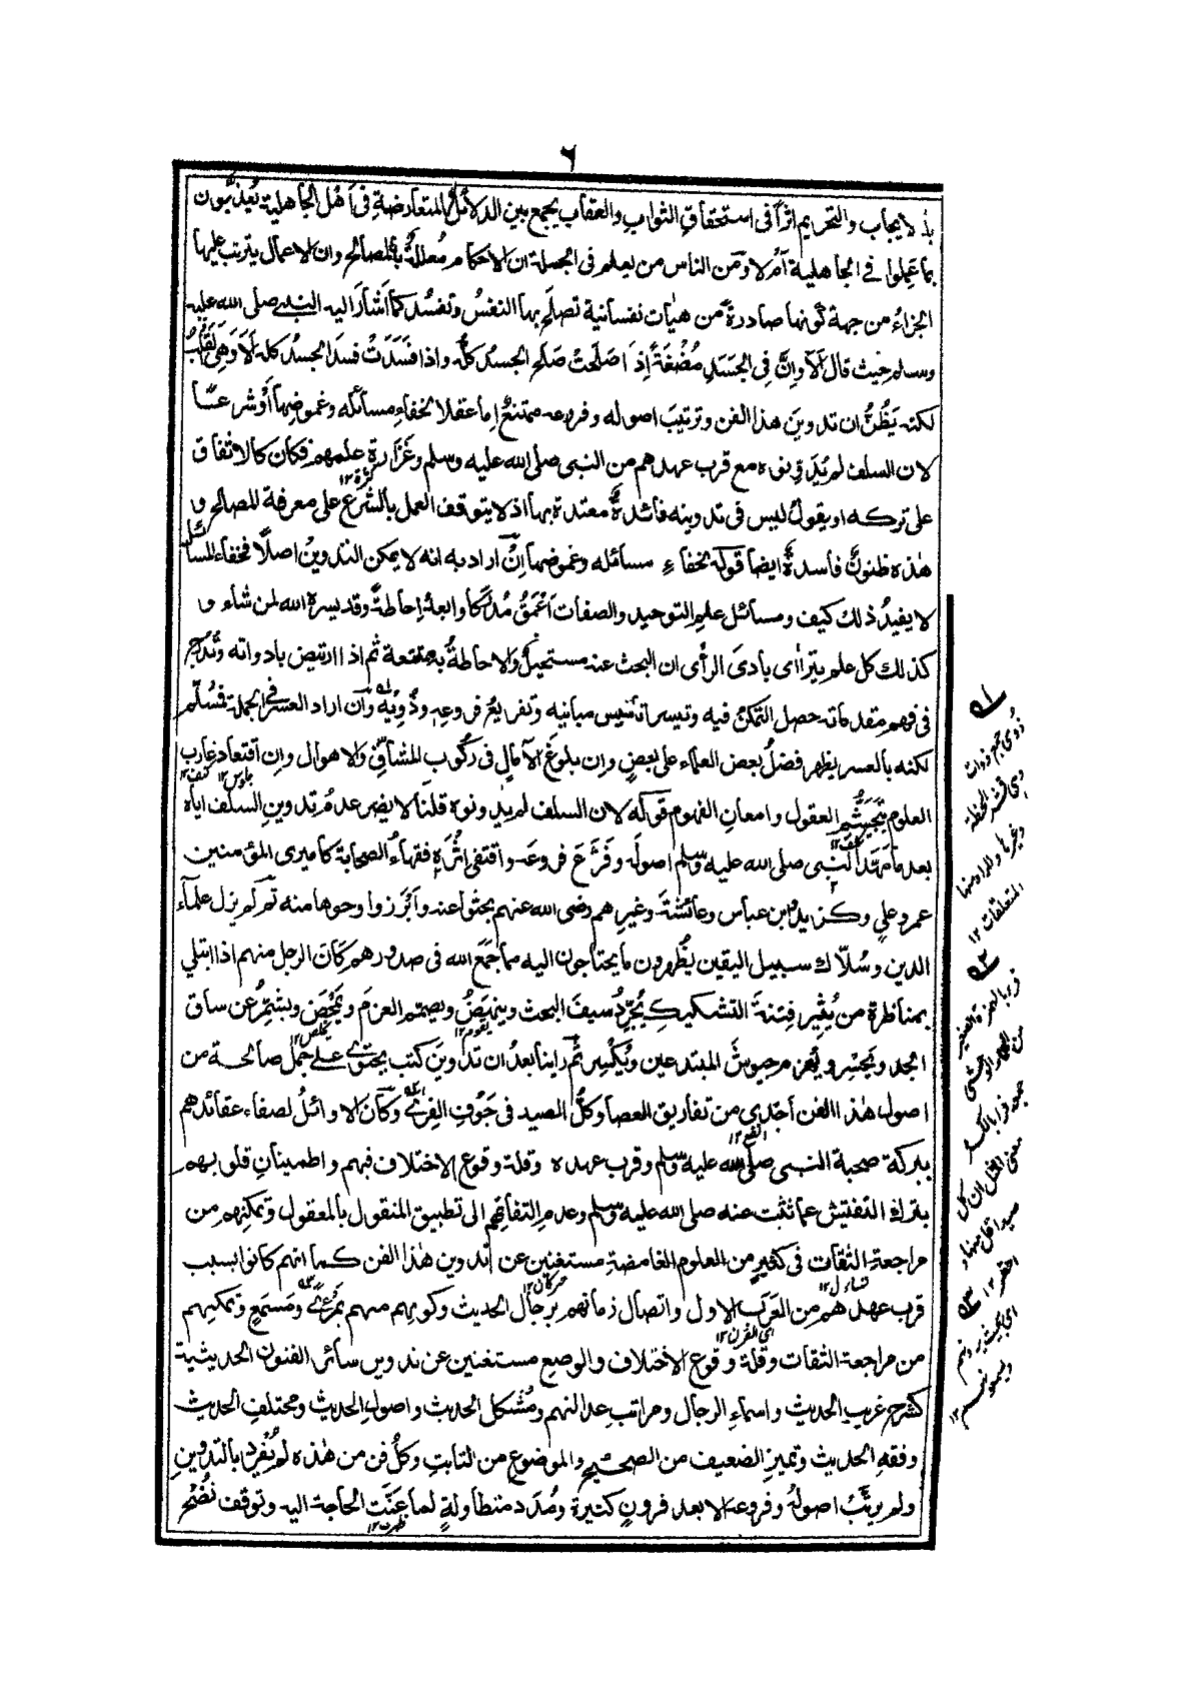 ٦
بالايجاب والتحريم اثرًا فى استحقاق الثواب والعقاب يجمع بين الدلائل المتعارضة فى اَهْل الجاهلية يُعذَّبون
بما عَمِلوا فى الجاهلية اَمْ لا ومن الناس من يعلم فى الجملة ان الاحكام مُعللةٌ بالمصالح وان الاعمال يترتب عليها
الجزاءُ من جهة كونها صادرةً من هيٰات نفسانية تصلح بها النفسُ وتفسُد كما اَشارَ اليه النبى صلى الله عليه
وسلم حيث قال اَلَا وانَّ فِى الجَسَدِ مُضْغَةً اِذَا صَلَحَتْ صَلح الجسدُ كلُّه واذا فَسَدَتْ فسدَ الجسدُ كله اَلَا وَهِىَ القَلْبُ
لكنه يَظُنُّ ان تدوينَ هذا الفن وترتيبَ اصوله وفروعه ممتنعٌ اِما عقلا لخفاءِ مسائله وغموضها اَوْ شرعًا
لان السلف لم يُدَوِّنوه مع قرب عهدهم من النبى صلى الله عليه وسلم وغَزَارةِ علمهم فكان كالاتفاق
على تركه او يقولُ ليس فى تدوينه فائدةٌ معتدة بها اذ لا يتوقف العمل بالشرع على معرفة المصالح و
هٰذه ظنونٌ فاسدةٌ ايضًا قوله لخفاءِ مسائله وغموضها اِنْ اراد به انه لا يمكن التدوينُ اصلًا فخفاء المسائل
لا يفيدُ ذلك كيف ومسائل علمِ التوحيد والصفات اَعْمَقُ مُدْرَكًا وابعدُ اِحاطةً وقد يسره الله لمن شاء و
كذلك كل علم يترااى بادىَ الرأى ان البحث عنه مستحيلٌ والاحاطةُ به ممتنعة ثم اذا ارتيض بادواته وتُدُرِّج
فى فهم مقدماته حصل التمكنُ فيه وتيسر تاسيس مبانيه وتفريعُ فروعِه وذَوِيهِ وان اراد العسرَ فى الجملة فمُسَلَّم
لكنه بالعسر يظهر فضلُ بعض العلماء على بعضٍ وان بلوغَ الآمالِ فى ركُوب المشاقِّ والاهوال وان اقتعاد غارب
العلوم بتَجَشُّم العقول وامعانِ الفهوم قوله لان السلف لم يدونوه قلنا لا يضر عدمُ تدوينِ السلف اياه
بعد ما مَهَّدَ النبى صلى الله عليه وسلم اصولَه وفَرَّعَ فروعَه واقتفى اثْرَه فقهاءُ الصحابة كاميرى المؤمنين
عمر وعلي وكزيد وابن عباس وعائشةَ وغيرِهم رضى الله عنهم بحثوا عنه واَبْرَزوا وجوها منه ثم لم يزل علماءُ
الدين وسُلّاك سبيل اليقين يُظهرون ما يحتاجون اليه مما جَمَعَ الله فى صدورهم كَانَ الرجل منهم اذا ابتلي
بمناظرة من يُثير فِتنةَ التشكيكِ يُجَرِّدُ سيفَ البحث وينهَضُ ويصمم العزمَ ويَمْحَضُ ويشمِّرُ عن ساق
الجد ويَحْسِر ويَهزم جيوشَ المبتدعين ويَكْسِر ثُم راينا بعدُ ان تدوينَ كتب يحتوى على جُمَلٍ صالحة من
اصول هٰذا الفن اَجْدى من تفاريق العصا وكلُّ الصيد فى جَوْفِ الفِرَا وكان الاوائلُ لصفاء عقائدهم
ببركة صحبة النبى صلى الله عليه وسلم وقرب عهده وقلة وقوع الاختلاف فيهم واطمينانِ قلوبهم
بترك التفتيش عما ثبت عنه صلى الله عليه وسلم وعدمِ التفاتهم الى تطبيق المنقول بالمعقول وتمكنِهم من
مراجعة الثقات فى كثيرٍ من العلوم الغامضة مستغنين عن تدوين هٰذا الفن كما انهم كانوا بسبب
قرب عهدهم من القرن الاول واتصال زمانهم برجال الحديث وكونِهم منهم بمَرْءًى ومَسمَعٍ وتمكنِهم
من مراجعة الثقات وقلة وقوع الاختلاف والوضع مستغنين عن تدوين سائر الفنون الحديثية
كشرح غريب الحديث واسماءِ الرجال ومراتبِ عدالتهم ومُشكل الحديث واصولِ الحديث ومختلفِ الحديث
وفقهِ الحديث وتميزِ الضعيف من الصحيح والموضوع من الثابتِ وكلُّ فن من هٰذه لم يُفرد بالتدوين
ولم يرتَّبْ اصولُه وفروعه الا بعد قرونٍ كثيرة ومُدَد متطاولةٍ لما عَنَّتِ الحاجة اليه وتوقف نُصْحُ